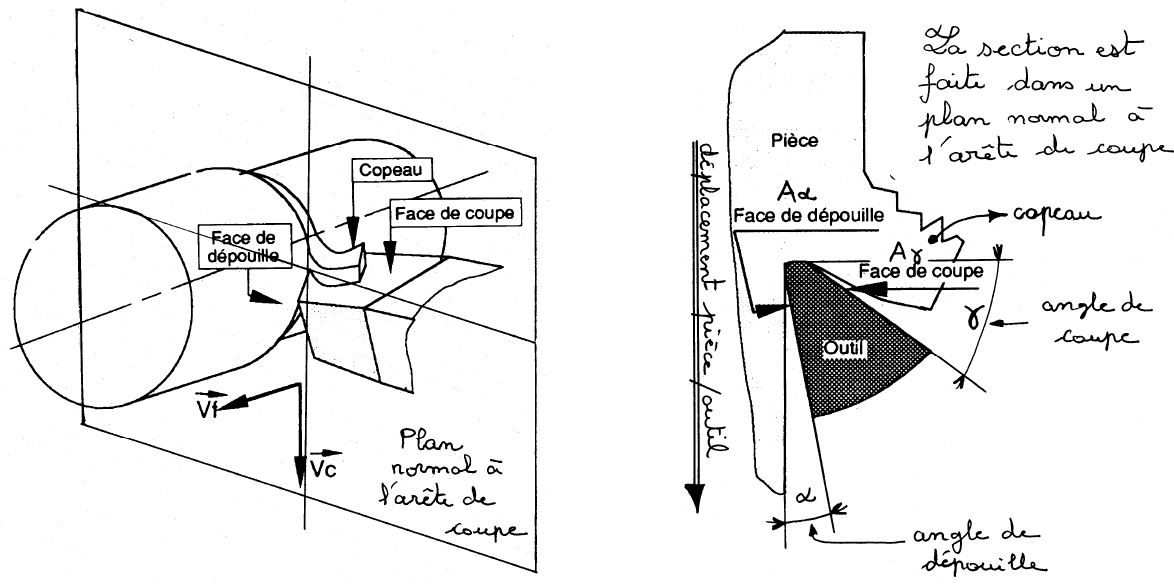 Copeau
Face de coupe
Face de
dépouille
Vf
Vc
Plan
normal à
l'arête de
coupe
La section est
faite dans un
plan normal à
l'arête de coupe
Pièce
déplacement pièce/outil
Aα
Face de dépouille
copeau
Aγ
Face de coupe
γ
angle de
coupe
Outil
α
angle de
dépouille